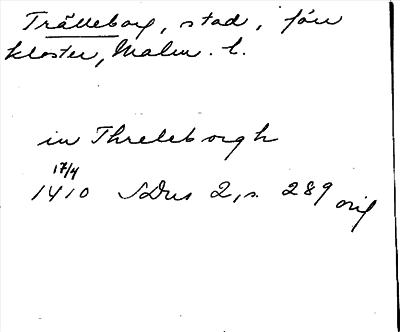 Trälleborg, stad, förr
kloster, Malm. l.
in Threleborgh
17/4
1410 SDns 2, s. 289 orig